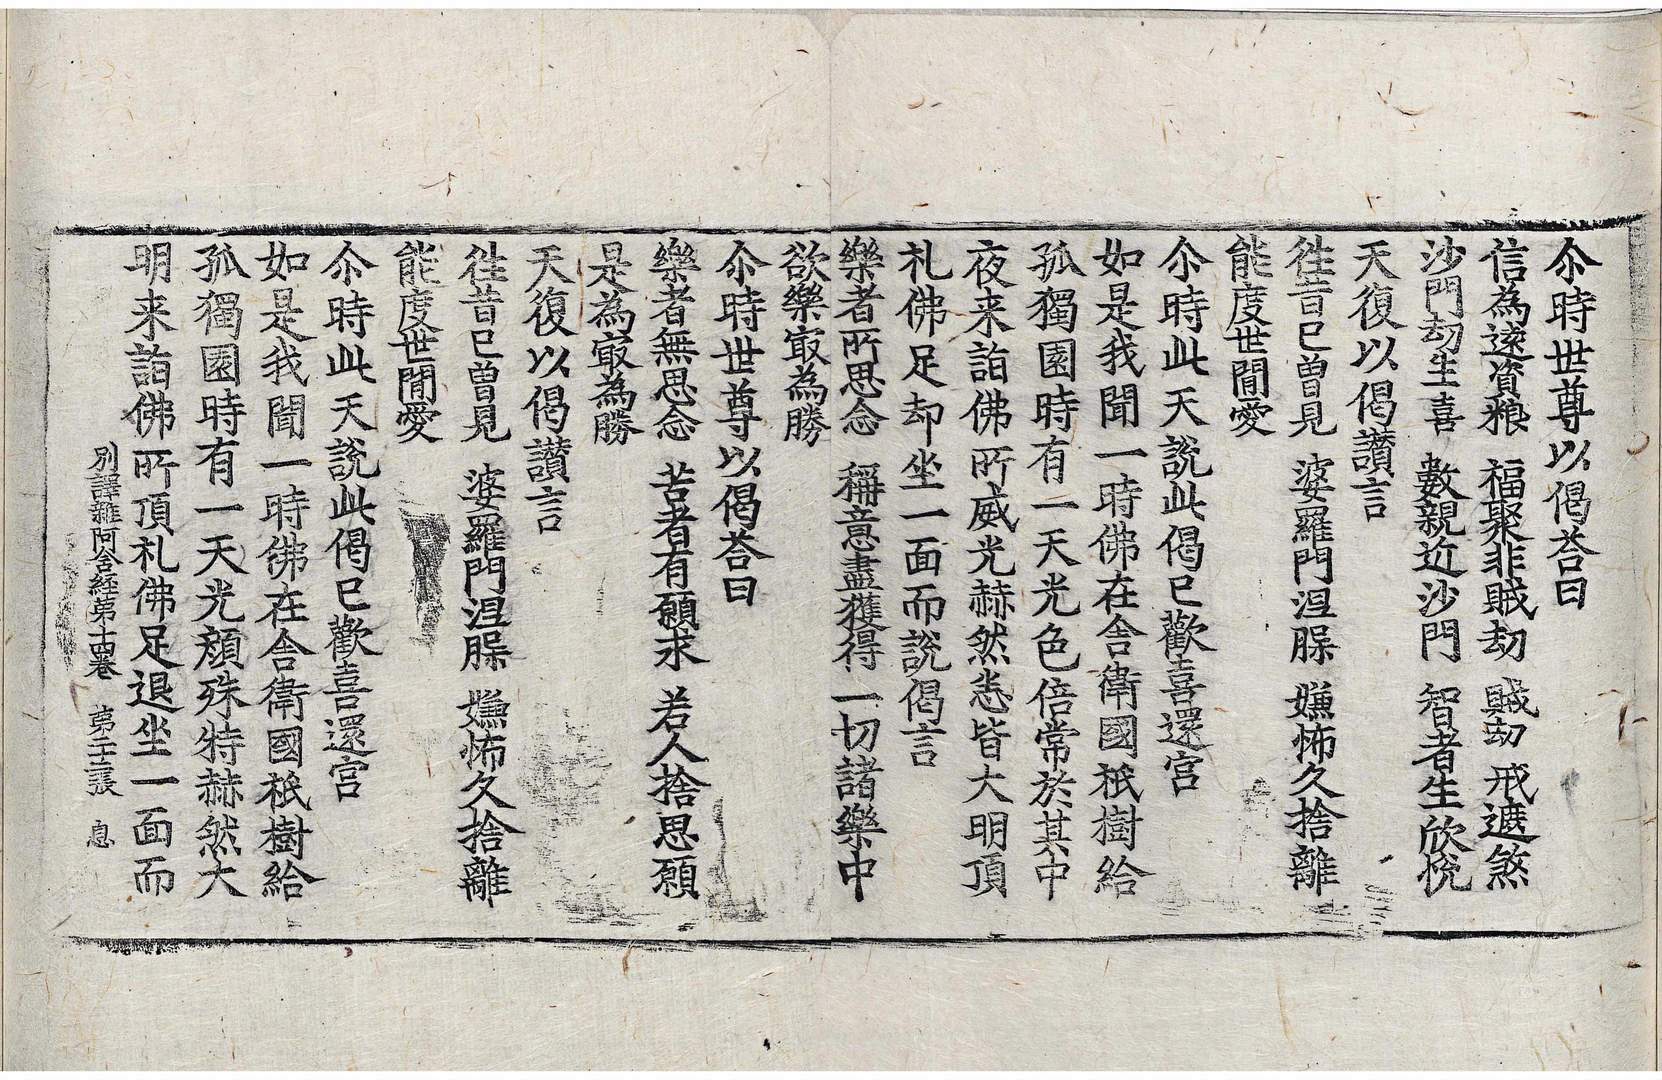 尒時世尊以偈荅曰
信為遠資粮　福聚非賊劫　賊劫戒遮煞
沙門劫生喜　數親近沙門　智者生欣悅
天復以偈讃言
徃昔已曾見　婆羅門涅𣨛　嫌怖久捨離
能度世閒愛
尒時此天說此偈已歡喜還宮
如是我聞一時佛在舍衛國祇樹給
孤獨園時有一天光色倍常於其中
夜来詣佛所威光赫然悉皆大明頂
礼佛足却坐一面而說偈言
樂者所思念　稱意盡獲得　一切諸樂中
欲樂㝡為勝
尒時世尊以偈荅曰
樂者無思念　苦者有願求　若人捨思願
是為㝡為勝
天復以偈讃言
徃昔已曾見　婆羅門涅𣨛　嫌怖久捨離
能度世閒愛
尒時此天說此偈已歡喜還宮
如是我聞一時佛在舍衛國祇樹給
孤獨園時有一天光顏殊特赫然大
明来詣佛所頂礼佛足退坐一面而
別譯雜阿含経苐十四卷　苐二十三張　息